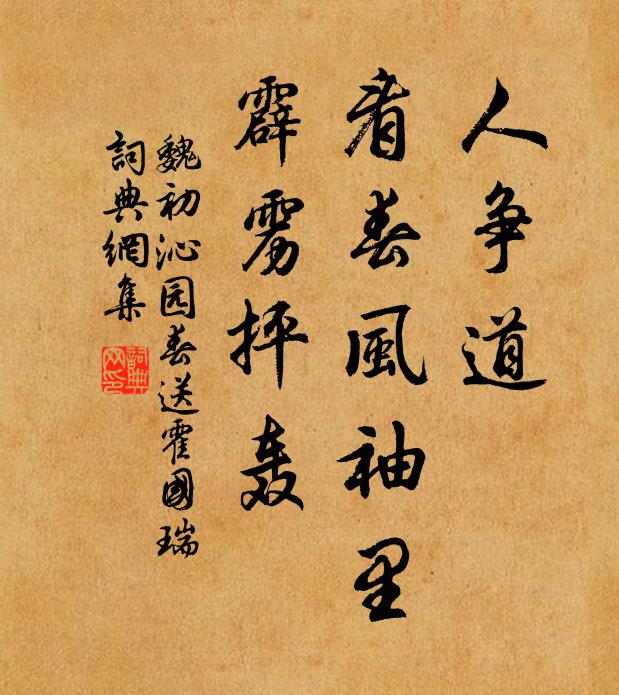 人争道
看春風袖里
霹雳抨轰
魏初沁园春送霍國瑞
詞典網集
詞典網印